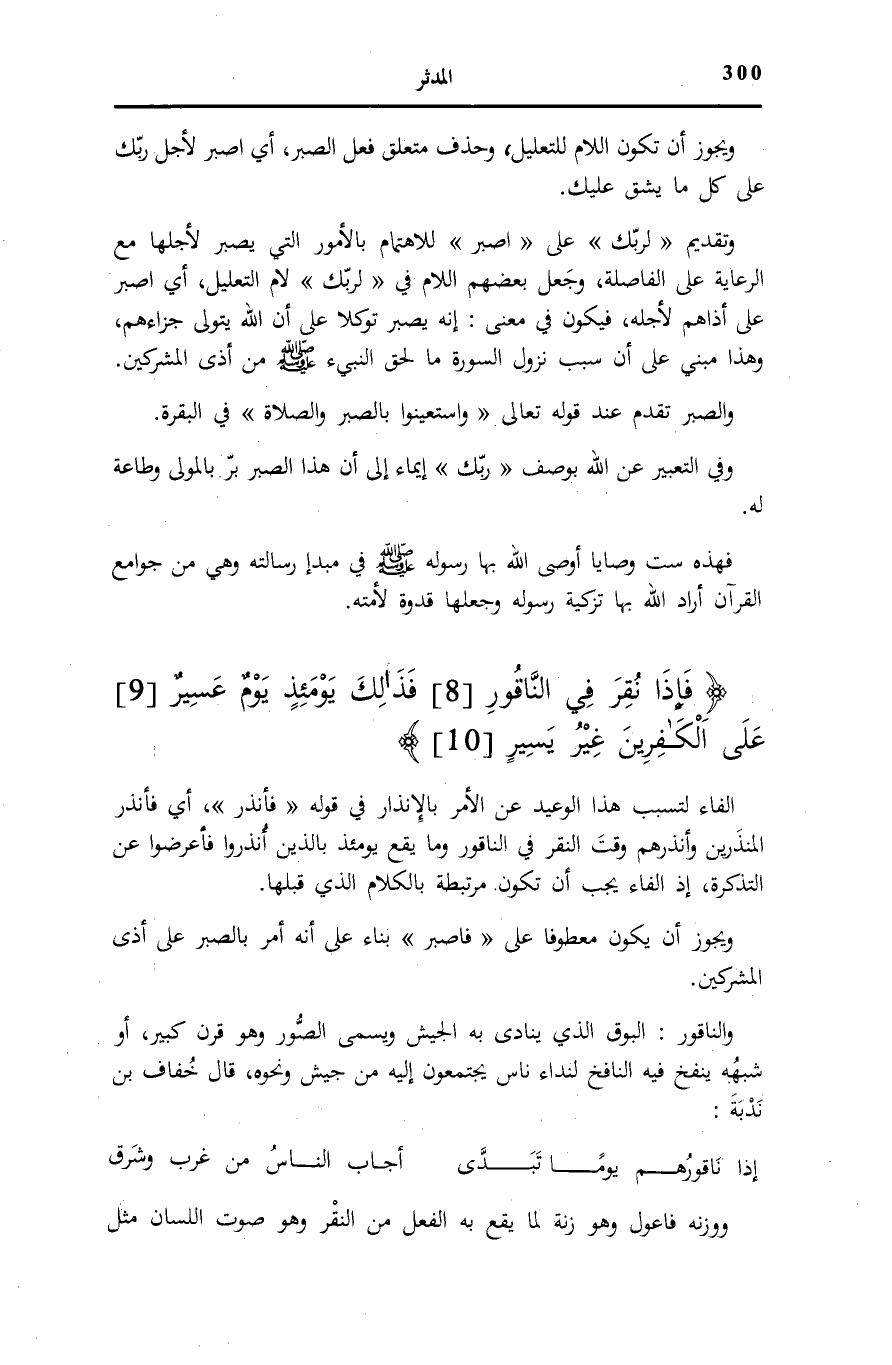 300
المدثر
ويجوز أن تكون اللام للتعليل، وحذف متعلق فعل الصبر، أي اصبر لأجل ربّك
على كل ما يشق عليك.
وتقديم « لربّك » على « اصبر » للاهتمام بالأمور التي يصبر لأجلها مع
الرعاية على الفاصلة، وجَعل بعضهم اللام في « لربّك » لام التعليل، أي اصبر
على أذاهم لأجله، فيكون في معنى : إنه يصبر توكلا على أن الله يتولى جزاءهم،
وهذا مبني على أن سبب نزول السورة ما لحق النبيء ﷺ من أذى المشركين.
والصبر تقدم عند قوله تعالى « واستعينوا بالصبر والصلاة » في البقرة.
وفي التعبير عن الله بوصف « ربّك » إيماء إلى أن هذا الصبر برّ بالمولى وطاعة
له.
فهذه ست وصايا أوصى الله بها رسوله ﷺ في مبدإ رسالته وهي من جوامع
القرآن أراد الله بها تزكية رسوله وجعلها قدوة لأمته.
﴿ فَإِذَا نُقِرَ فِي النَّاقُورِ [8] فَذَٰلِكَ يَوْمَئِذٍ يَوْمٌ عَسِيرٌ [9]
عَلَى اَلْكَـٰفِرِينَ غَيْرُ يَسِيرٍ [10] ﴾
الفاء لتسبب هذا الوعيد عن الأمر بالإنذار في قوله « فأنذر »، أي فأنذر
المنذَرين وأنذرهم وقتَ النقر في الناقور وما يقع يومئذ بالذين أُنذروا فأعرضوا عن
التذكرة، إذ الفاء يجب أن تكون مرتبطة بالكلام الذي قبلها.
ويجوز أن يكون معطوفا على « فاصبر » بناء على أنه أمر بالصبر على أذى
المشركين.
والناقور : البوق الذي ينادى به الجيش ويسمى الصُّور وهو قرن كبير، أو
شبهُه ينفخ فيه النافخ لنداء ناس يجتمعون إليه من جيش ونحوه، قال خُفاف بن
نَدْبَةَ :
إذا نَاقورُهـم يومًـا تَبَـدَّى أجاب النـاسُ من غرب وشَرق
ووزنه فاعول وهو زنة لما يقع به الفعل من النقْر وهو صوت اللسان مثل